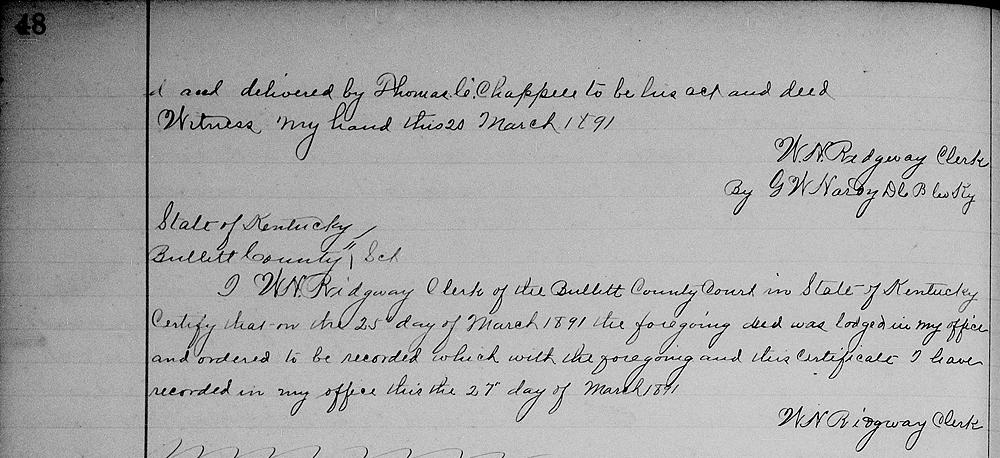 48
d and delivered by Thomas C. Chappell to be his act and deed
Witness my hand this 20 March 1891
W.N. Ridgway Clerk
By G W Hardy DC B Co Ky
State of Kentucky
Bullitt County Sct
I W.N. Ridgway Clerk of the Bullitt County Court in State of Kentucky
Certify that on the 25" day of March 1891 the foregoing deed was lodged in my office
and ordered to be recorded which with the foregoing and this Certificate I have
recorded in my office this the 27" day of March 1891
W N Ridgway Clerk